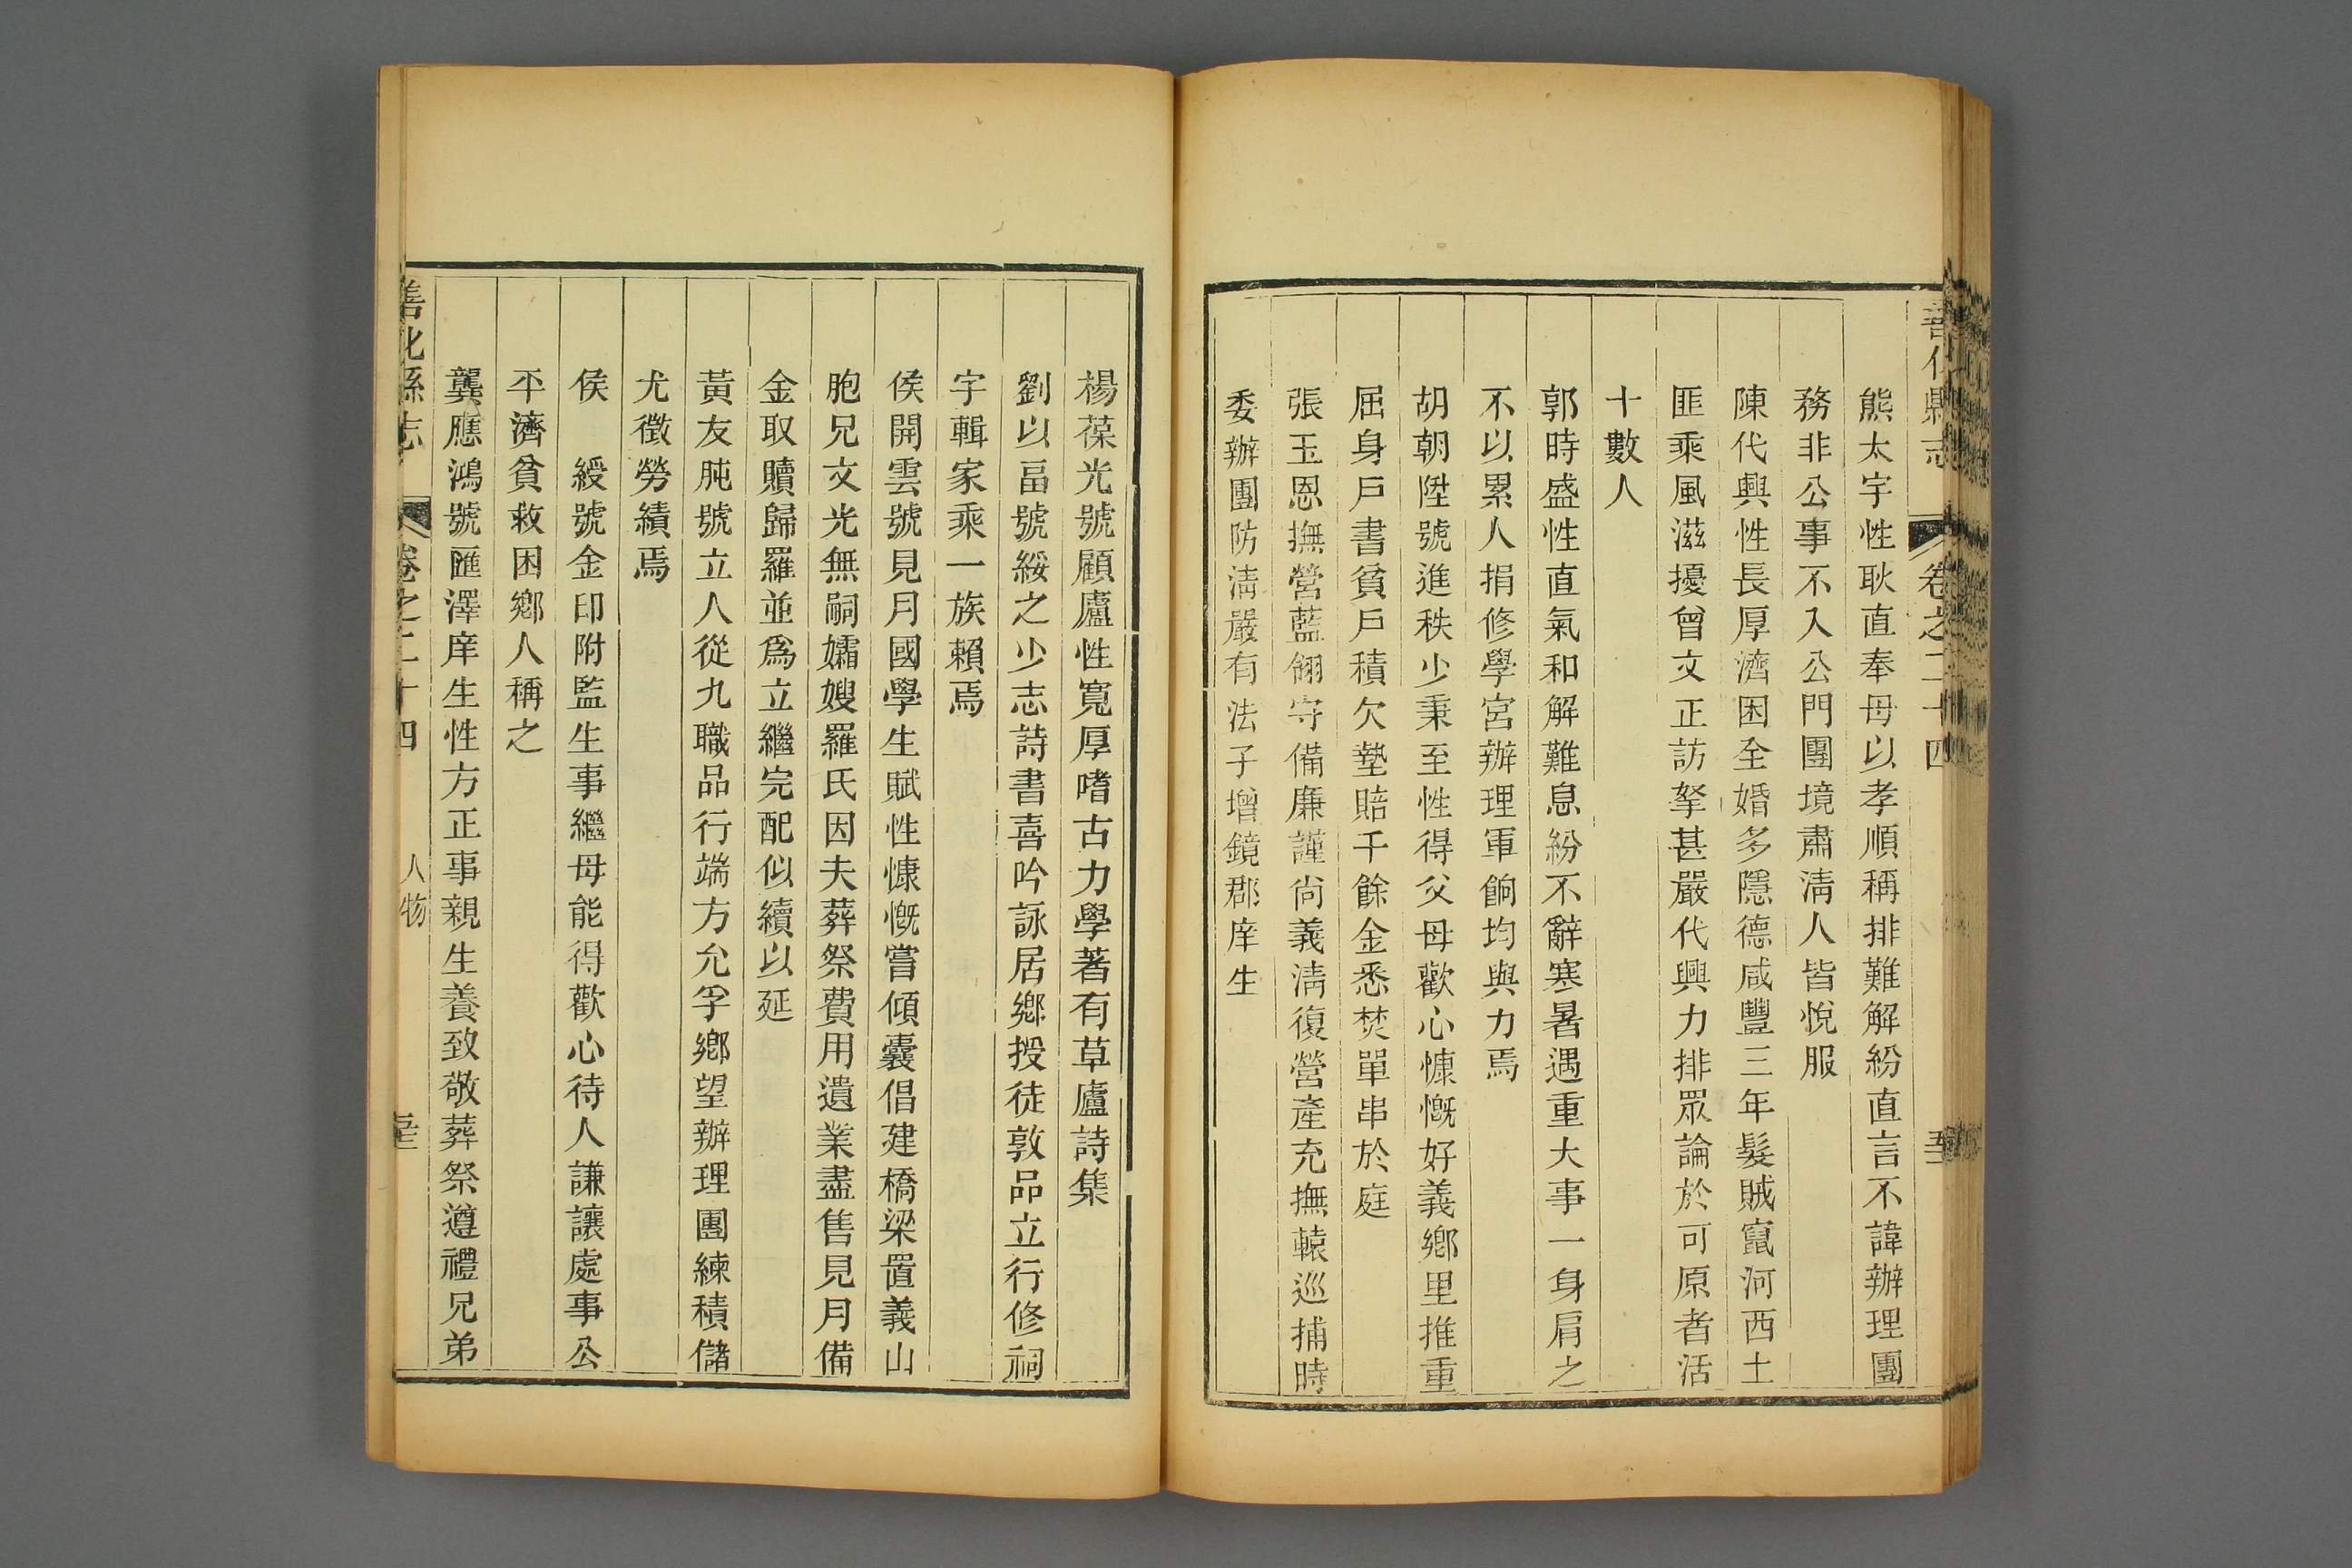 善化縣志
卷之二十四
熊太宇性耿直奉母以孝順稱排難解紛直言不諱辦理團
務非公事不入公門團境肅清人皆悅服
陳代興性長厚濟困全婚多隱德咸豐三年髮賊竄河西土
匪乘風滋擾曾文正訪拏甚嚴代興力排眾論於可原者活
十數人
郭時盛性直氣和解難息紛不辭寒暑遇重大事一身肩之
不以累人捐修學宮辦理軍餉均與力焉
胡朝陞號進秩少秉至性得父母歡心慷慨好義鄉里推重
屈身戶書貧戶積欠墊賠千餘金悉焚單串於庭
張玉恩撫營藍翎守備廉謹尚義淸復營產充撫轅巡捕時
委辦團防淸嚴有法子增鏡郡庠生
楊葆光號顧廬性寬厚嗜古力學著有草廬詩集
劉以畐號綏之少志詩書喜吟詠居鄉授徒敦品立行修祠
宇輯家乘一族賴焉
侯開雲號見月國學生賦性慷慨嘗傾囊倡建橋梁置義山
胞兄文光無嗣孀嫂羅氏因夫葬祭費用遺業盡售見月備
金取贖歸羅並爲立繼完配似續以延
黃友肫號立人從九職品行端方允孚鄉望辦理團練積儲
尤徵勞績焉
侯　綬號金印附監生事繼母能得歡心待人謙讓處事公
平濟貧救困鄉人稱之
龔應鴻號匯澤庠生性方正事親生養致敬葬祭遵禮兄弟
善化縣志
卷之二十四
人物